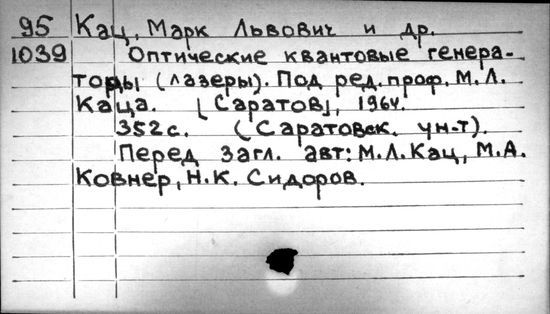 95 Кац, Марк Львович и др.
1039 Оптические квантовые генера-
торы (лазеры). Под ред. проф. М.Л.
Каца. [Саратов], 1964.
352 с. (Саратовск. ун-т).
Перед загл. авт: М.Л. Кац, М.А.
Ковнер, Н.К. Сидоров.